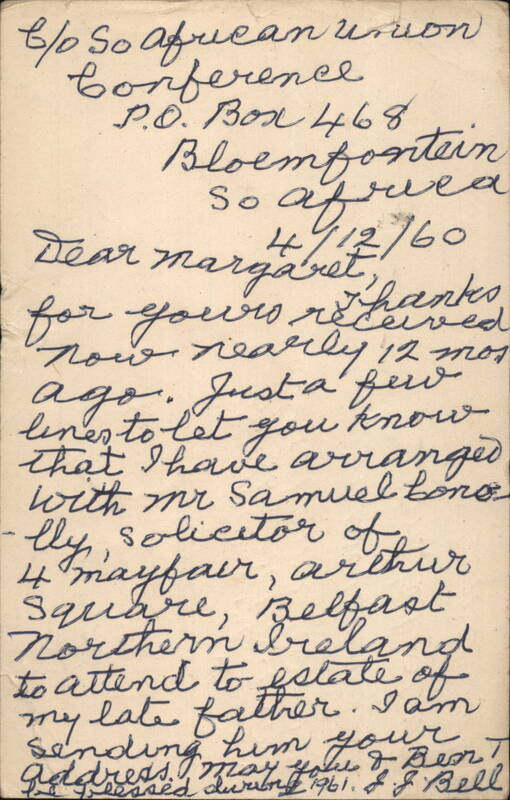 C/o So African Union
Conference
P.O. Box 468
Bloemfontein
So Africa
4/12/60
Dear Margaret,
Thanks
for yours received
now nearly 12 mos
ago. Just a few
lines to let you know
that I have arranged
with Mr Samuel Cono-
-lly, solicitor of
4 Mayfair, Arthur
Square, Belfast
Northern Ireland
to attend to estate of
my late father. I am
sending him your
address. May you & Ben
be blessed during 1961. J J Bell